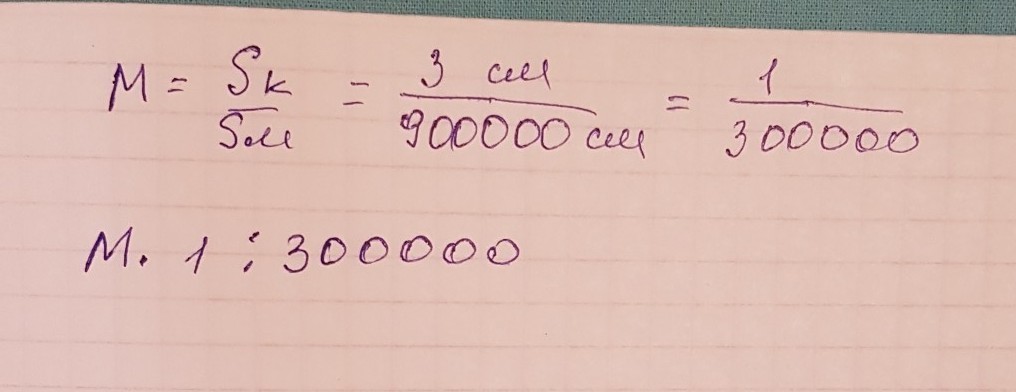 M = Sк / Sм = 3 см / 900000 см = 1 / 300000
М. 1 : 300000